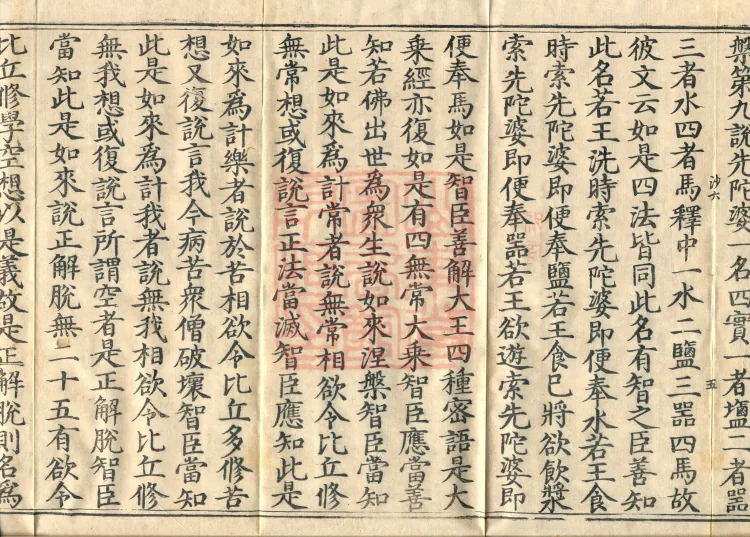 槃第九說先陀婆一名四實一者塩二者器
沙六 五
三者水四者馬釋中一水二鹽三器四馬故
彼文云如是四法皆同此名有智之臣善知
此名若王洗時索先陀婆即便奉水若王食
時索先陀婆即便奉鹽若王食已將欲飲漿
索先陀婆即便奉器若王欲遊索先陀婆即
便奉馬如是智臣善解大王四種密語是大
乘經亦復如是有四無常大乘智臣應當善
知若佛出世為衆生說如來涅槃智臣當知
此是如來為計常者說無常相欲令比丘修
無常想或復說言正法當滅智臣應知此是
如來為計樂者說於苦相欲令比丘多修苦
想又復說言我今病苦衆僧破壞智臣當知
此是如來為計我者說無我相欲令比丘修
無我想或復說言所謂空者是正解脫智臣
當知此是如來說正解脫無二十五有欲令
比丘修學空想以是義故是正解脫則名為